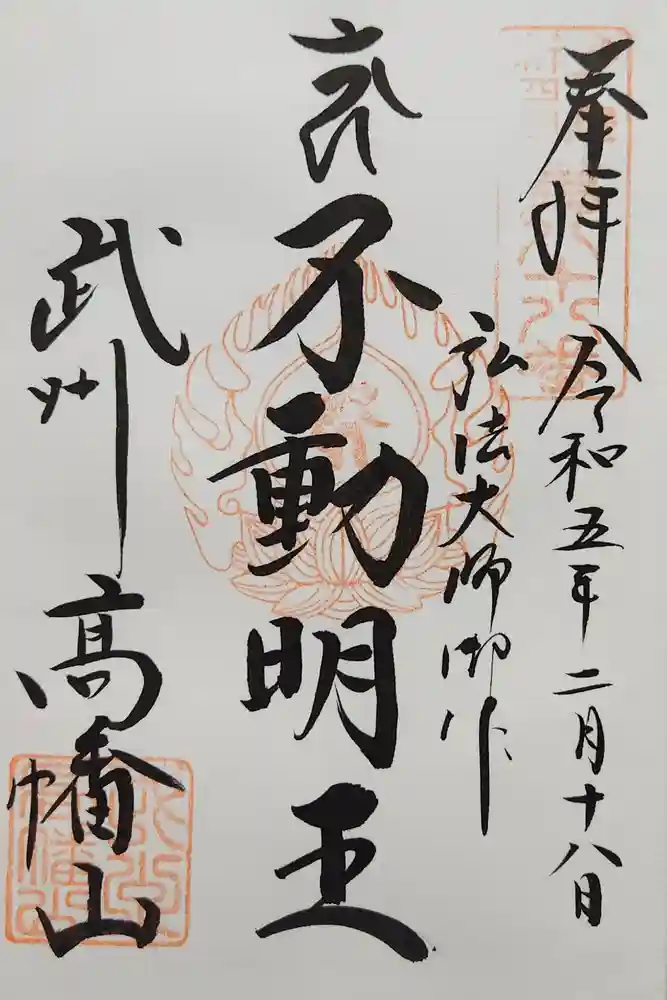 奉拝
令和五年二月十八日
弘法大師御作
不動明王
武州
高幡山